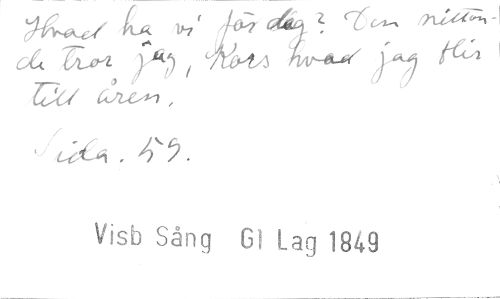 Hvad ha vi för dag? Den nitton-
de tror jag, Kors hvad jag blir
till åren.
Sida. 59.
Visb Sång Gl Lag 1849